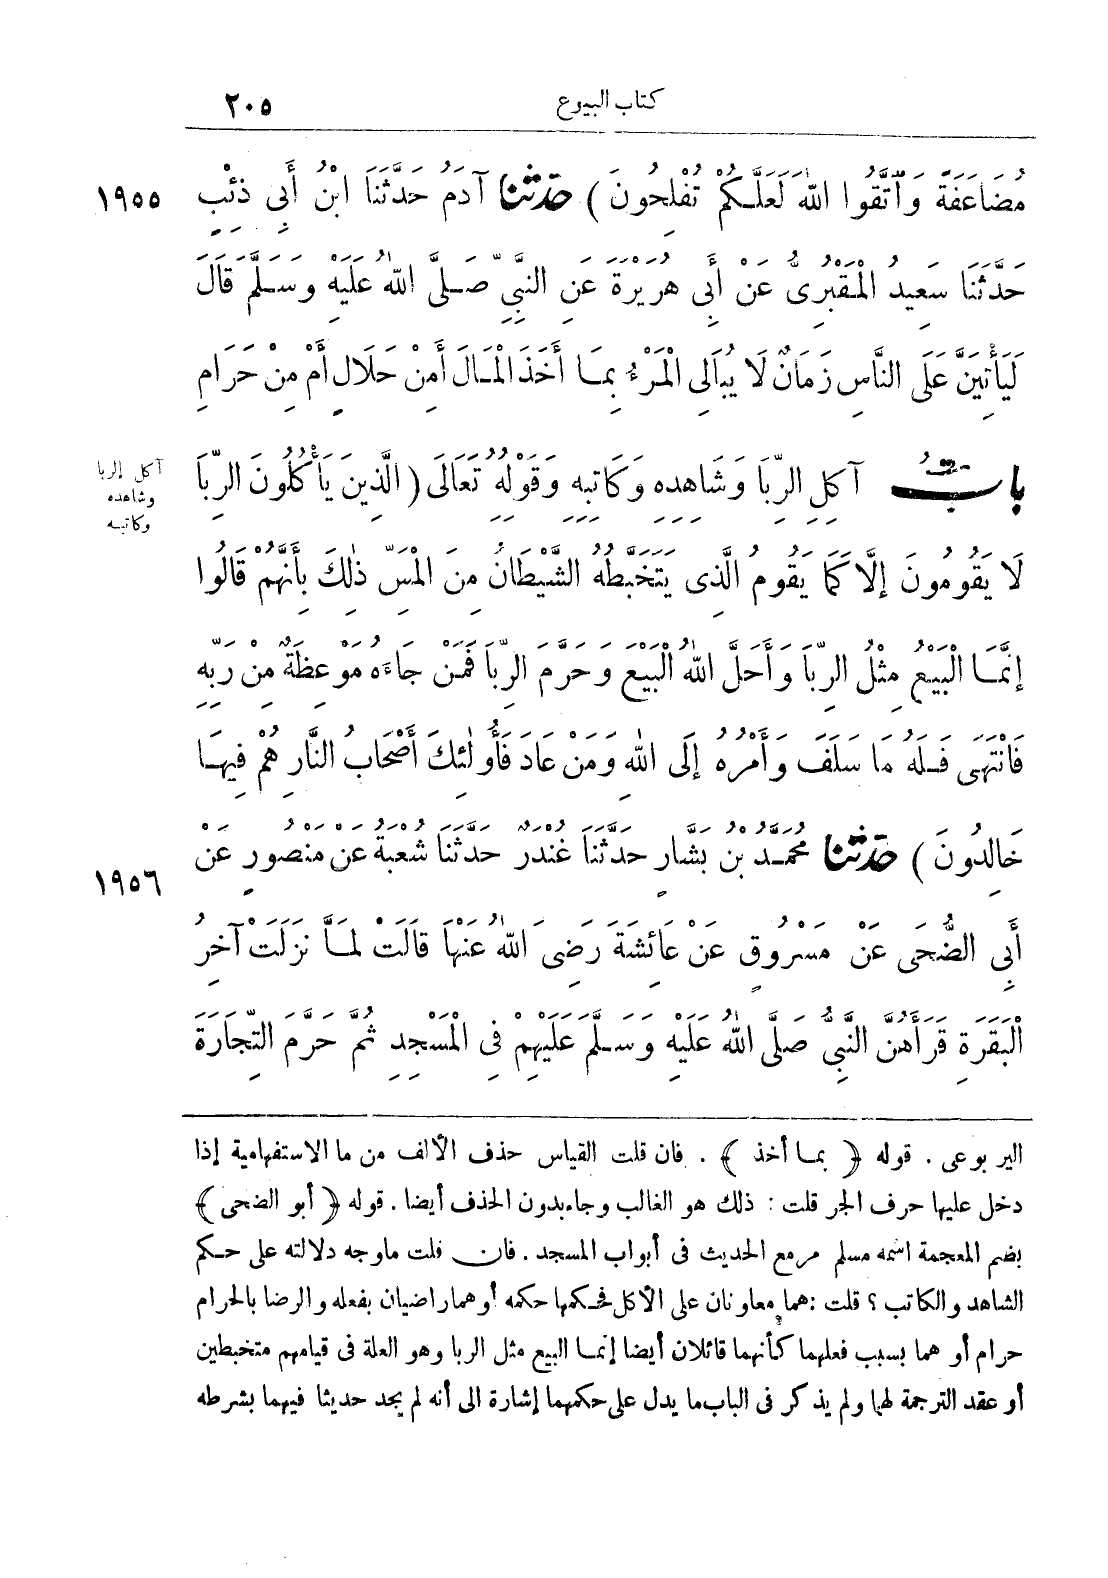 كتاب البيوع ٢٠٥
مُضَاعَفَةً وَاتَّقُوا اللهَ لَعَلَّكُمْ تُفْلِحُونَ ) حَدَّثَنَا آدَمُ حَدَّثَنَا ابْنُ أَبِي ذِئْبٍ ١٩٥٥
حَدَّثَنَا سَعِيدٌ الْمَقْبُرِيُّ عَنْ أَبِي هُرَيْرَةَ عَنِ النَّبِيِّ صَلَّى اللهُ عَلَيْهِ وَسَلَّمَ قَالَ
لَيَأْتِيَنَّ عَلَى النَّاسِ زَمَانٌ لَا يُبَالِي الْمَرْءُ بِمَا أَخَذَ الْمَالَ أَمِنْ حَلَالٍ أَمْ مِنْ حَرَامٍ
بَابُ آكِلِ الرِّبَا وَشَاهِدِهِ وَكَاتِبِهِ وَقَوْلِهِ تَعَالَى ( الَّذِينَ يَأْكُلُونَ الرِّبَا
آكل الربا
وشاهده
وكاتبه
لَا يَقُومُونَ إِلَّا كَمَا يَقُومُ الَّذِي يَتَخَبَّطُهُ الشَّيْطَانُ مِنَ الْمَسِّ ذٰلِكَ بِأَنَّهُمْ قَالُوا
إِنَّمَا الْبَيْعُ مِثْلُ الرِّبَا وَأَحَلَّ اللهُ الْبَيْعَ وَحَرَّمَ الرِّبَا فَمَنْ جَاءَهُ مَوْعِظَةٌ مِنْ رَبِّهِ
فَانْتَهَى فَلَهُ مَا سَلَفَ وَأَمْرُهُ إِلَى اللهِ وَمَنْ عَادَ فَأُولٰئِكَ أَصْحَابُ النَّارِ هُمْ فِيهَا
خَالِدُونَ ) حَدَّثَنَا مُحَمَّدُ بْنُ بَشَّارٍ حَدَّثَنَا غُنْدَرٌ حَدَّثَنَا شُعْبَةُ عَنْ مَنْصُورٍ عَنْ ١٩٥٦
أَبِي الضُّحَى عَنْ مَسْرُوقٍ عَنْ عَائِشَةَ رَضِيَ اللهُ عَنْهَا قَالَتْ لَمَّا نَزَلَتْ آخِرُ
الْبَقَرَةِ قَرَأَهُنَّ النَّبِيُّ صَلَّى اللهُ عَلَيْهِ وَسَلَّمَ عَلَيْهِمْ فِي الْمَسْجِدِ ثُمَّ حَرَّمَ التِّجَارَةَ
اليربوعى . قوله ﴿ بما أخذ ﴾ . فان قلت القياس حذف الألف من ما الاستفهامية إذا
دخل عليها حرف الجر قلت : ذلك هو الغالب وجاء بدون الحذف أيضا . قوله ﴿ أبو الضحى ﴾
بضم المعجمة اسمه مسلم مر مع الحديث فى أبواب المسجد . فان قلت ما وجه دلالته على حكم
الشاهد والكاتب ؟ قلت : هما معاونان على الأكل فحكمها حكمه أو هما راضيان بفعله والرضا بالحرام
حرام أو هما بسبب فعلهما كأنهما قائلان أيضا إنما البيع مثل الربا وهو العلة فى قيامهم متخبطين
أو عقد الترجمة لها ولم يذكر فى الباب ما يدل على حكمهما إشارة الى أنه لم يجد حديثا فيهما بشرطه